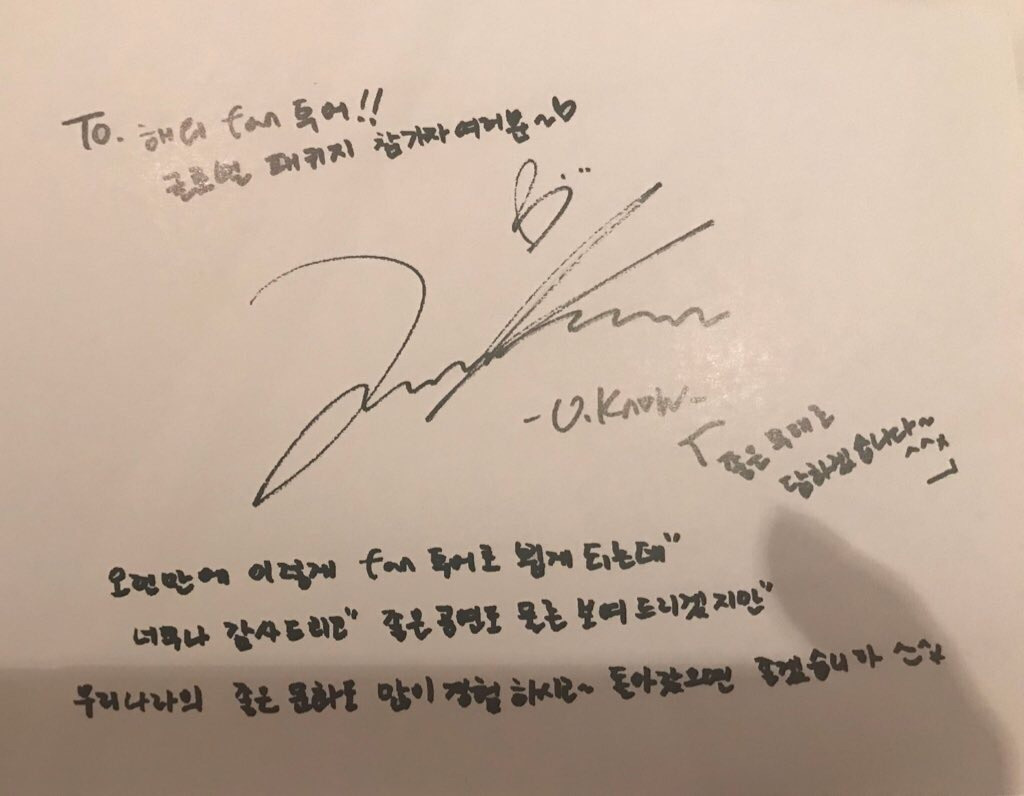 To. 해외 fan 투어!!
글로벌 패키지 참가자 여러분~♡
-U.Know-
「좋은 무대로
답하겠습니다~^^x」
오랜만에 이렇게 fan 투어로 뵙게 되는데"
너무나 감사드리고" 좋은 공연도 물론 보여 드리겠지만"
우리나라의 좋은 문화도 많이 경험 하시고~ 돌아갔으면 좋겠습니다 ^^x